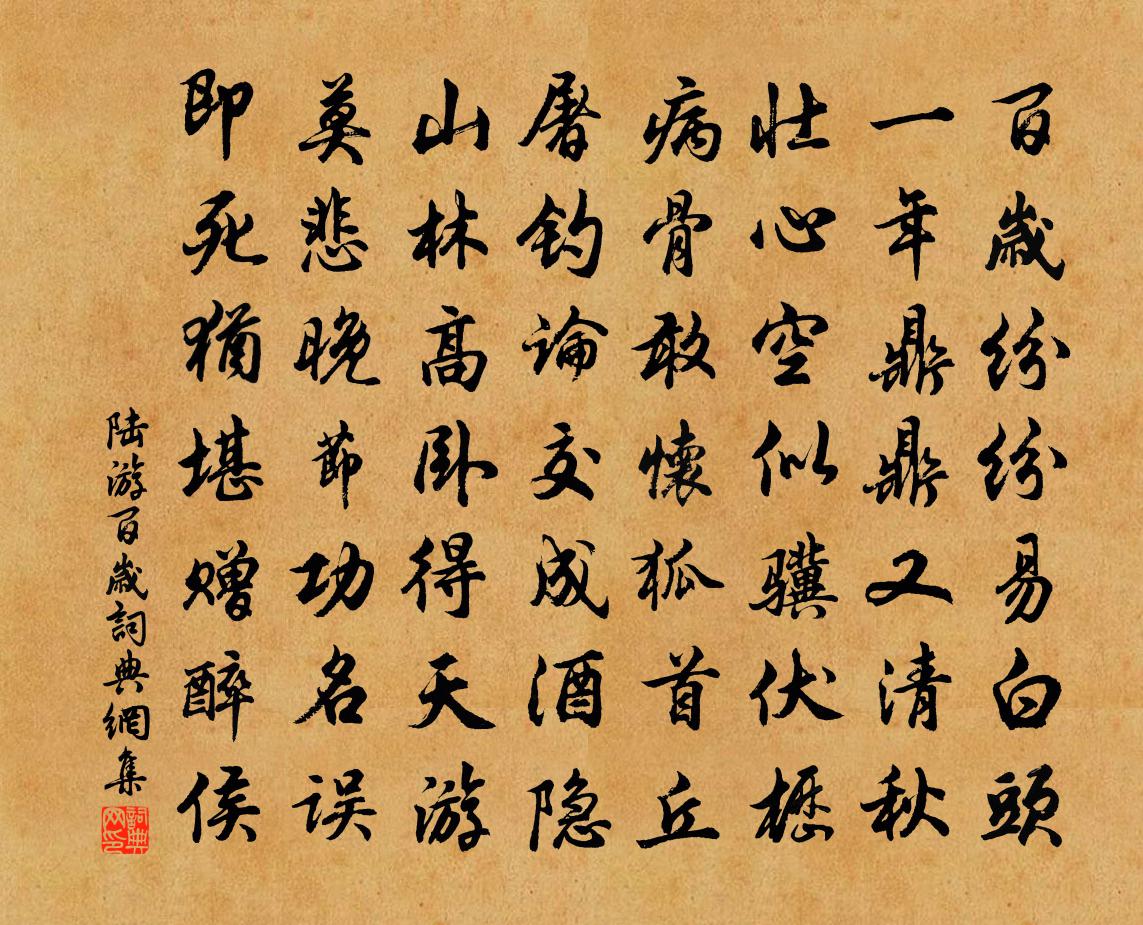 百歲紛紛易白頭
一年鼎鼎又清秋
壯心空似驥伏櫪
病骨敢懷狐首丘
屠釣論交成酒隐
山林高卧得天游
莫悲晚節功名误
即死猶堪赠醉侯
陆游百歲詞典網集
詞典网印